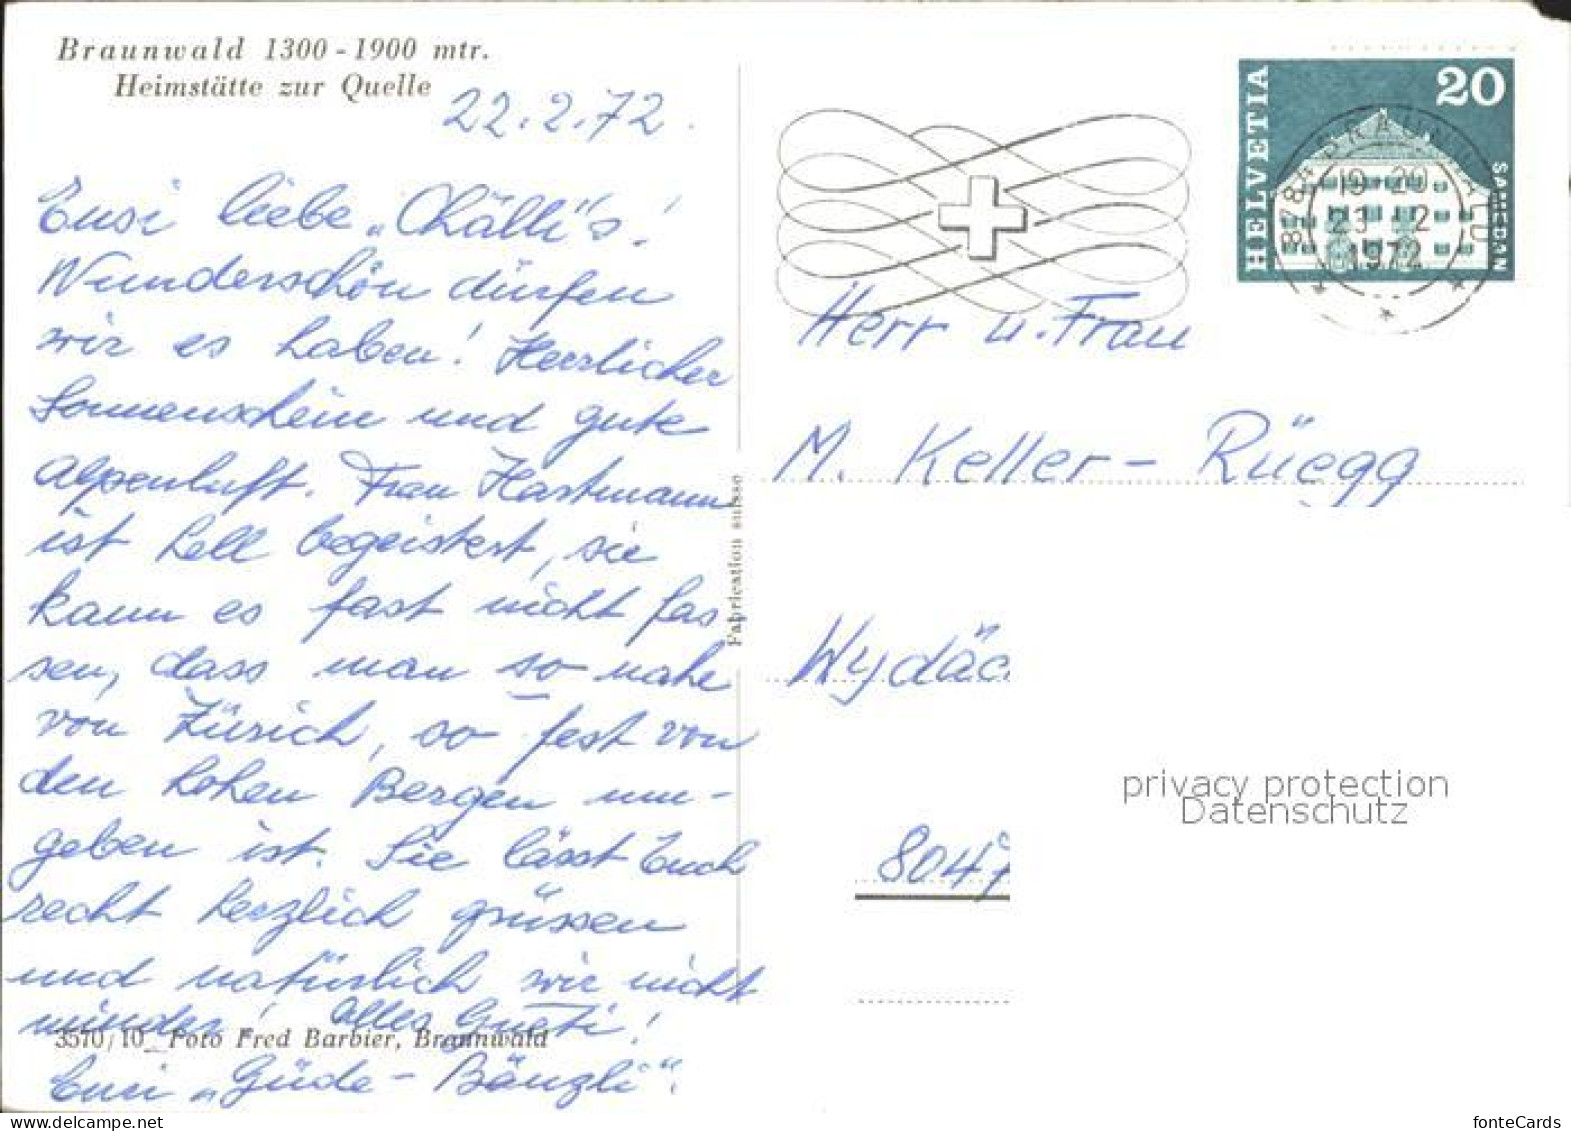 Braunwald 1300 - 1900 mtr.
Heimstätte zur Quelle
22.2.72.
Eusi liebe „Chälli"s!
Wunderschön dürfen
wir es haben! Herrlicher
Sonnenschein und gute
Alpenluft. Frau Hartmann
ist hell begeistert, sie
kann es fast nicht fas-
sen, dass man so nahe
von Zürich, so fest von
den hohen Bergen um-
geben ist. Sie lässt Euch
recht herzlich grüssen
und natürlich wir nicht
minder! Alles Gueti!
3570/10 Foto Fred Barbier, Braunwald
Eusi „Güde-Bänzli".
Fabrication suisse
HELVETIA
20
SAMEDAN
8784 BRAUNWALD
19-20
23 2
1972
Herr u. Frau
M. Keller-Rüegg
Wydäc
8047
privacy protection
Datenschutz
fonteCards
www.delcampe.net